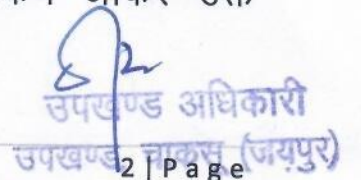 उपखण्ड अधिकारी
उपखण्ड चाकसू (जयपुर)
2 | P a g e